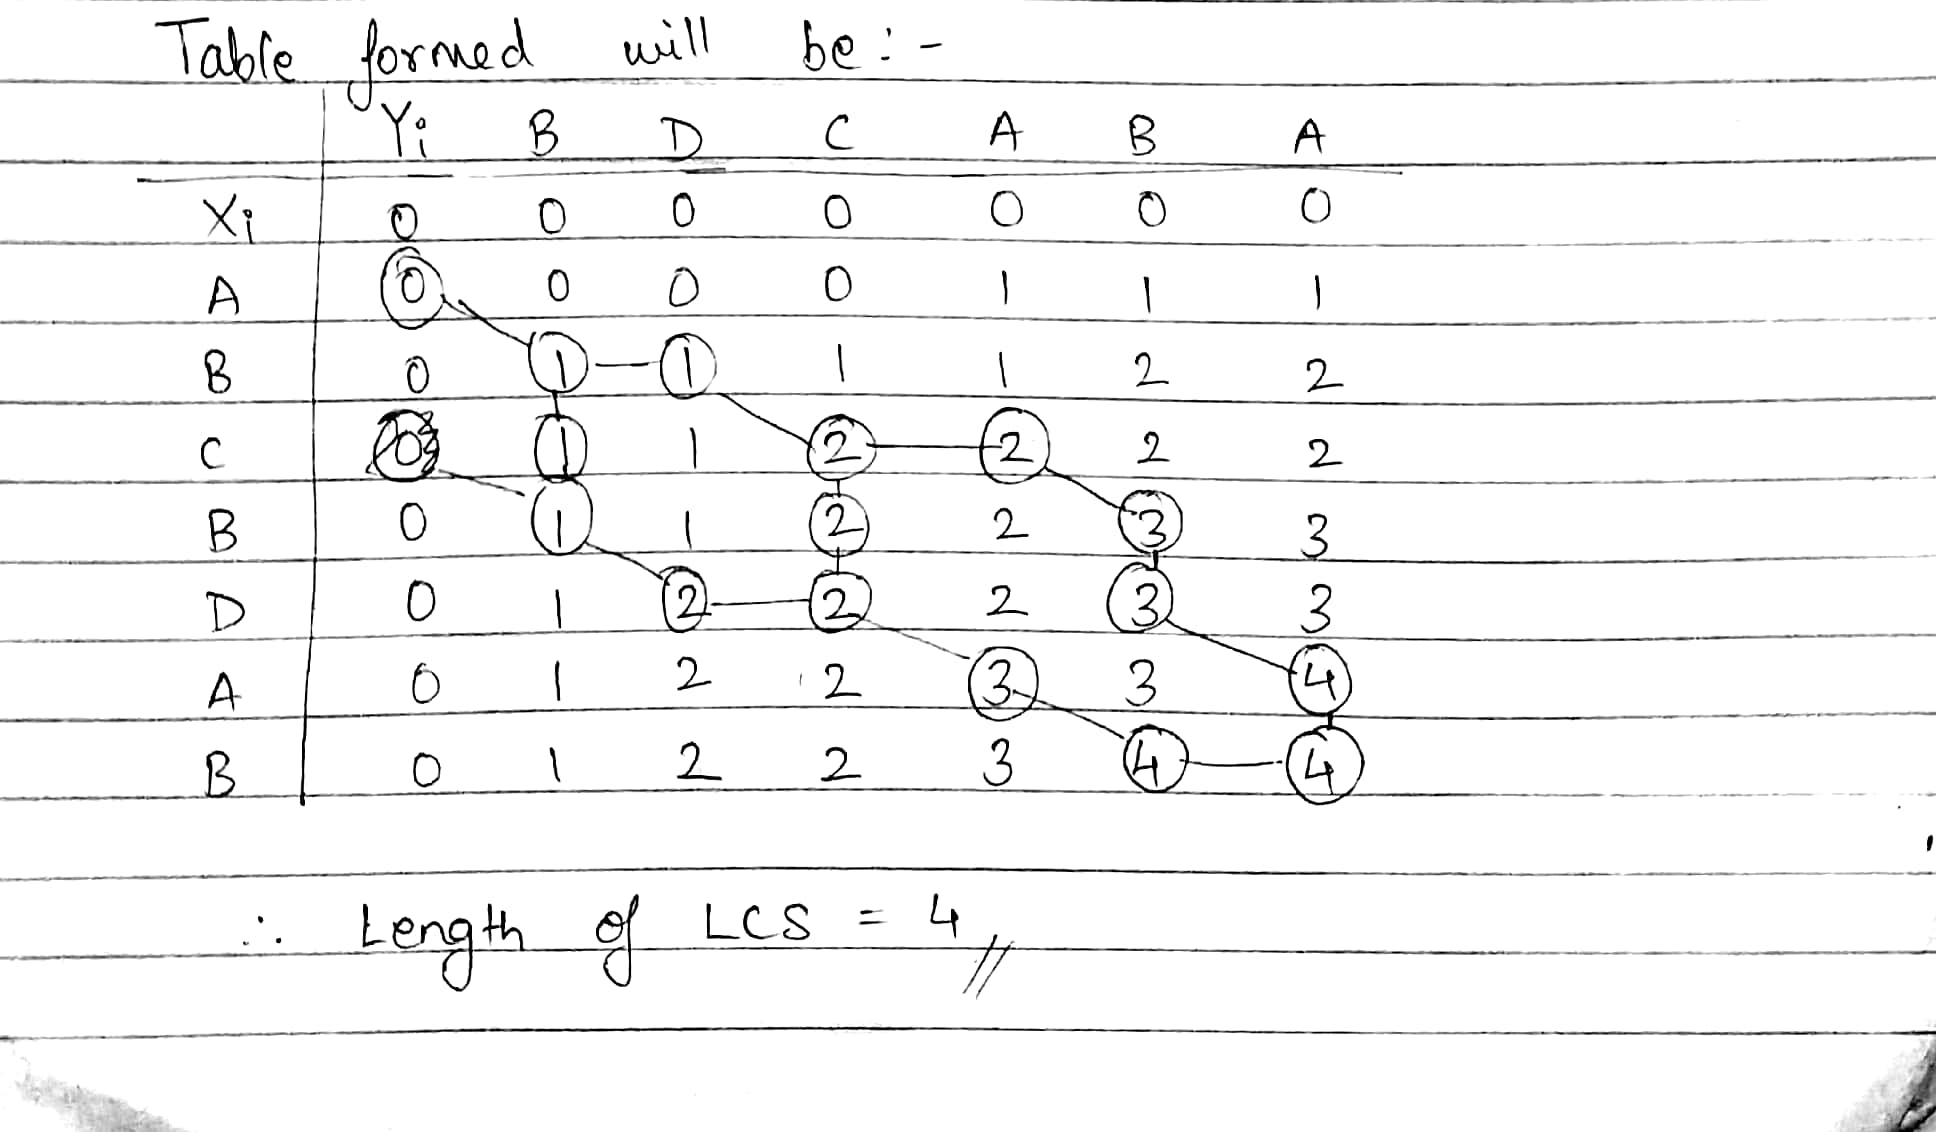 Table formed will be :-
Yi B D C A B A
Xi 0 0 0 0 0 0 0
A 0 0 0 0 1 1 1
B 0 1 1 1 1 2 2
C 0 1 1 2 2 2 2
B 0 1 1 2 2 3 3
D 0 1 2 2 2 3 3
A 0 1 2 2 3 3 4
B 0 1 2 2 3 4 4
∴ Length of LCS = 4 //